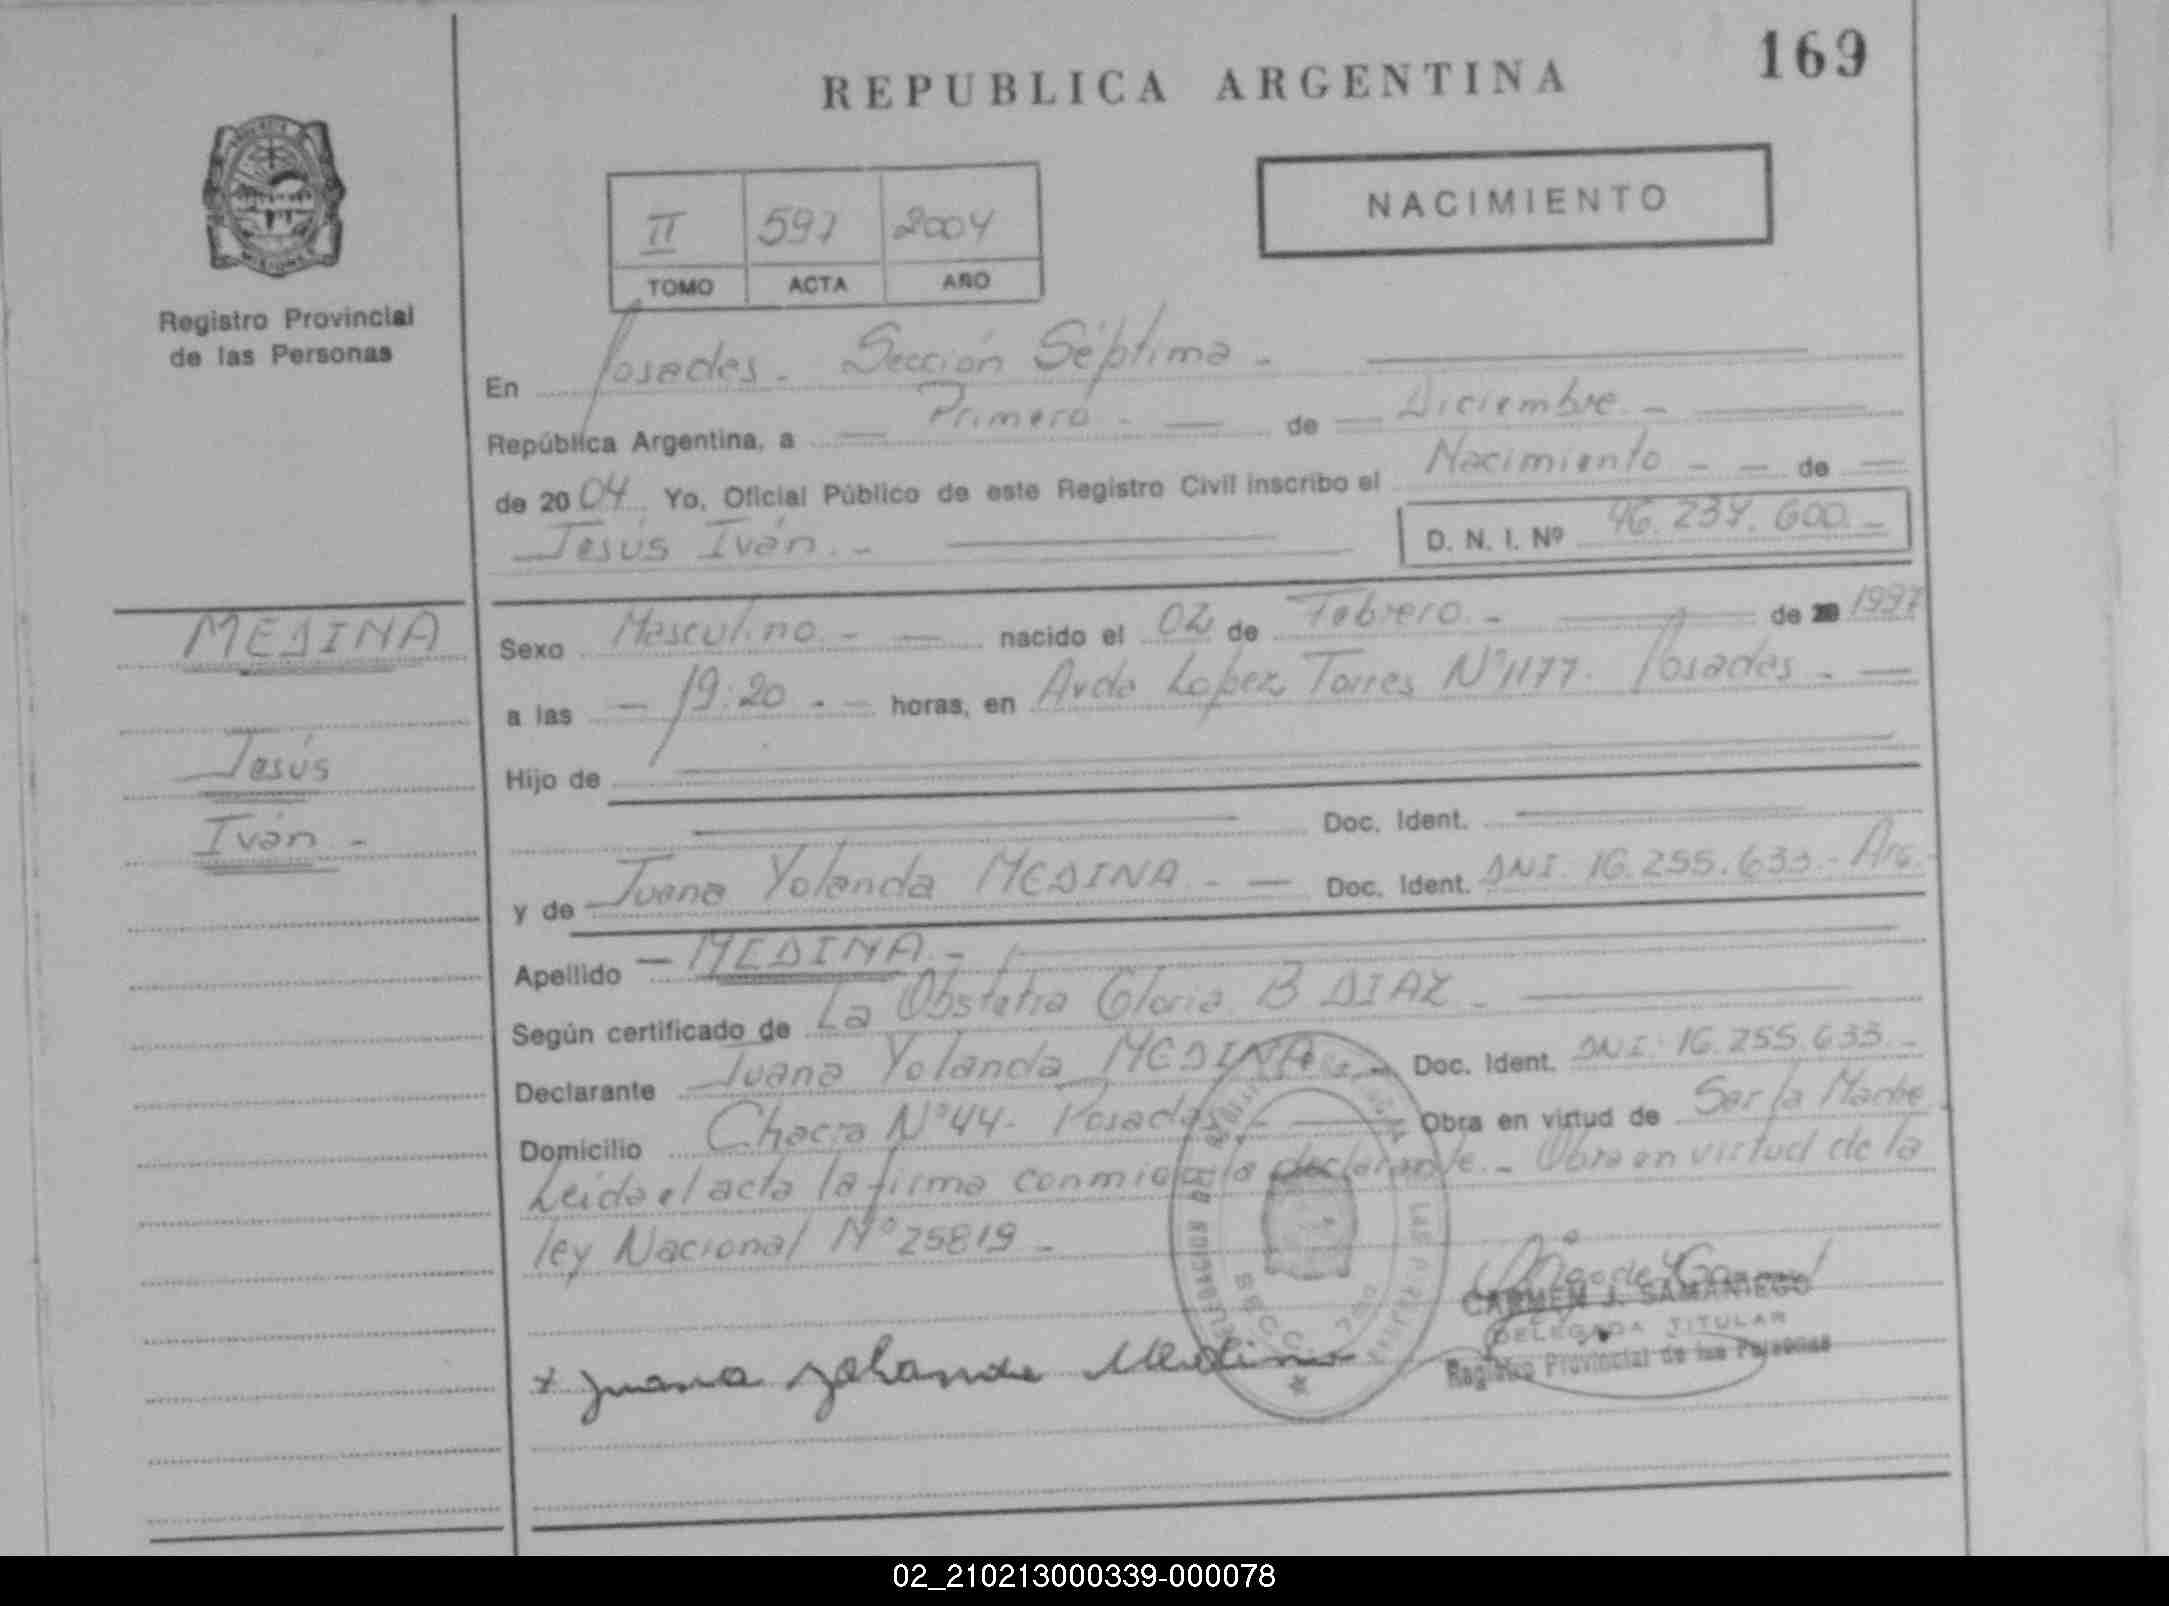 REPUBLICA ARGENTINA
169
NACIMIENTO
II 597 2004
TOMO ACTA AÑO
Registro Provincial
de las Personas
En Posadas - Sección Séptima -
República Argentina, a Primero - de Diciembre -
de 2004 Yo, Oficial Público de este Registro Civil inscribo el Nacimiento - - de
Jesús Iván. -
D. N. I. Nº 46.237.600.-
MEDINA
Jesús
Iván -
Sexo Masculino - nacido el 02 de Febrero - de 1997
a las - 19:20 - - horas, en Avda Lopez Torres Nº1177. Posadas -
Hijo de
Doc. Ident.
y de Juana Yolanda MEDINA - - Doc. Ident. DNI. 16.255.633.- Arg.-
Apellido - MEDINA -
Según certificado de La Obstetra Gloria B DIAZ -
Declarante Juana Yolanda MEDINA - Doc. Ident. DNI. 16.255.633 -
Domicilio Chacra Nº44- Posadas - Obra en virtud de Ser la Madre
Leida el acta la firma conmigo la declarante.- Obra en virtud de la
ley Nacional Nº 25819 -
x Juana Yolanda Medina
CARMEN J. SAMANIEGO
DELEGADA TITULAR
Registro Provincial de las Personas
02_210213000339-000078